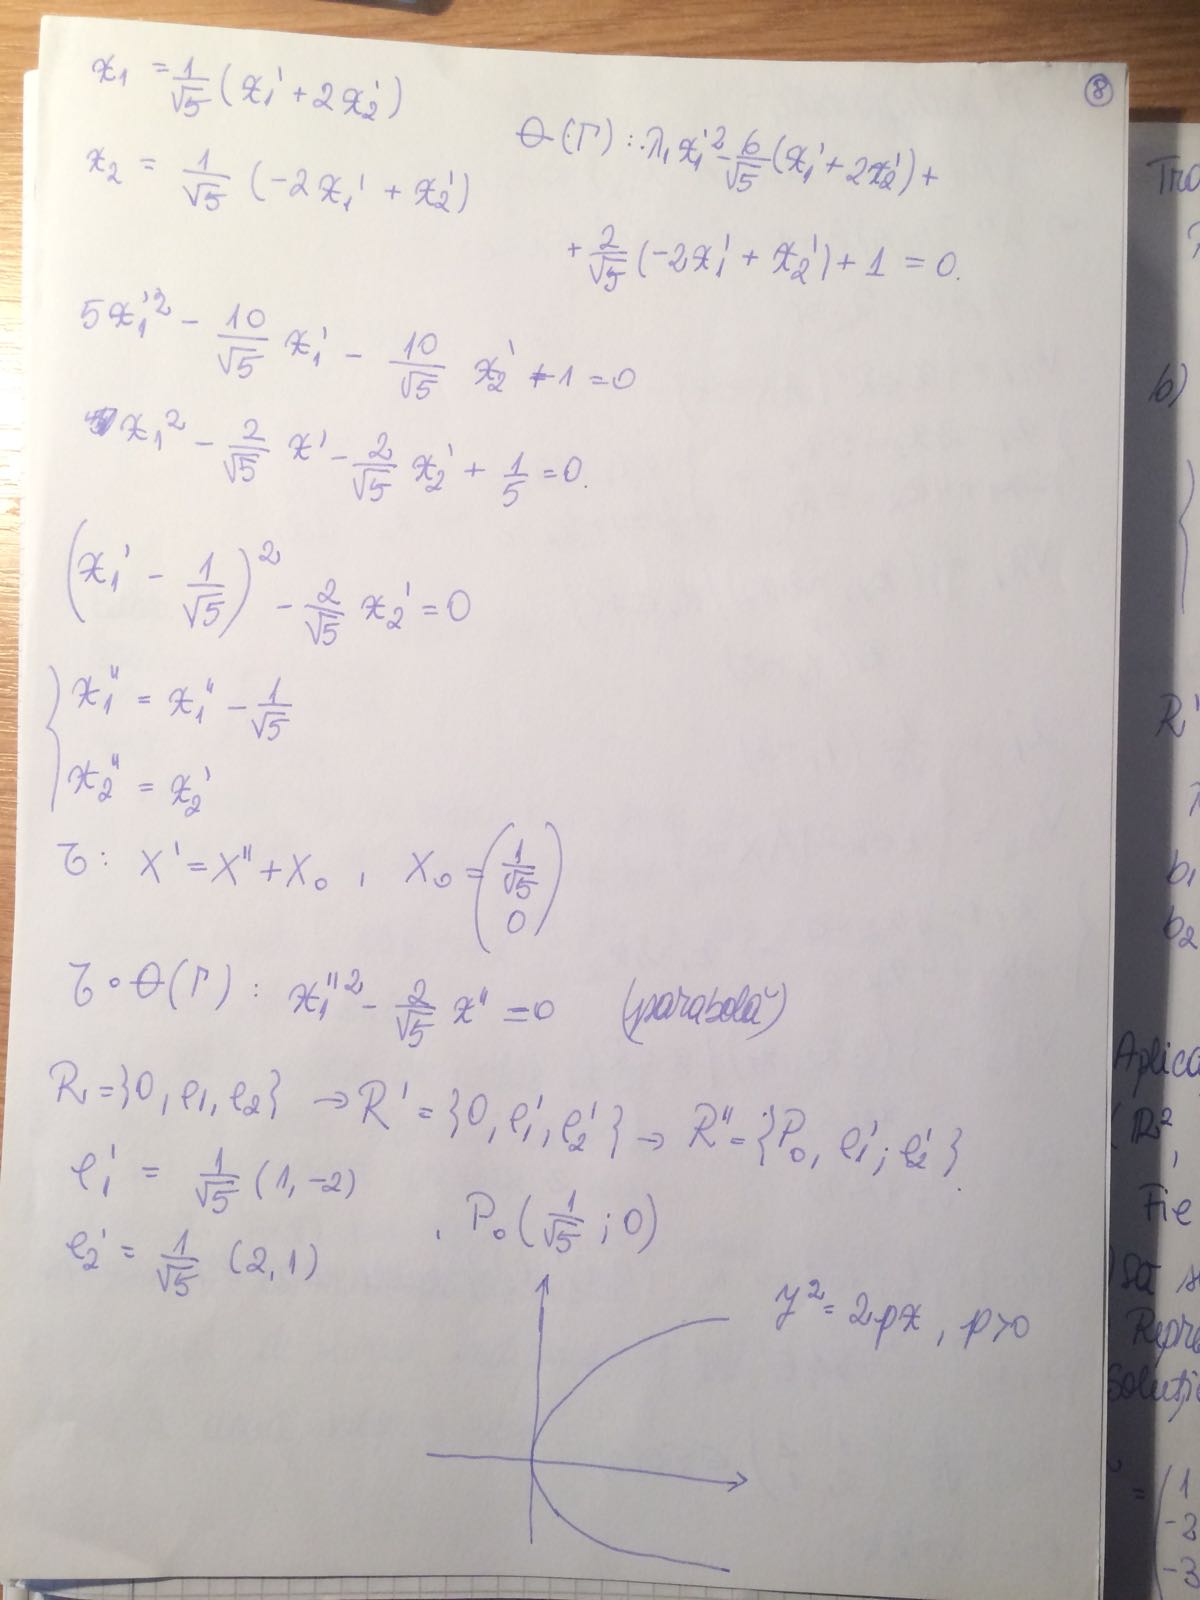 8
x₁ = 1/√5 (x₁' + 2x₂')
x₂ = 1/√5 (-2x₁' + x₂')
θ(Γ): λ₁x₁'² - 6/√5 (x₁' + 2x₂') +
+ 2/√5 (-2x₁' + x₂') + 1 = 0.
5x₁'² - 10/√5 x₁' - 10/√5 x₂' + 1 = 0
x₁² - 2/√5 x' - 2/√5 x₂' + 1/5 = 0.
(x₁' - 1/√5)² - 2/√5 x₂' = 0
{ x₁'' = x₁'' - 1/√5
x₂'' = x₂'
τ: X' = X'' + X₀, X₀ = (1/√5
0)
τ∘θ(Γ): x₁''² - 2/√5 x'' = 0 (parabolă)
R = {0, e₁, e₂} → R' = {0, e₁', e₂'} → R'' = {P₀, e₁'; e₂'}.
e₁' = 1/√5 (1, -2)
e₂' = 1/√5 (2, 1)
, P₀ (1/√5; 0)
y² = 2px, p>0
b)
R'
b₁
b₂
(R²,
Fie
= (1
-2
-3